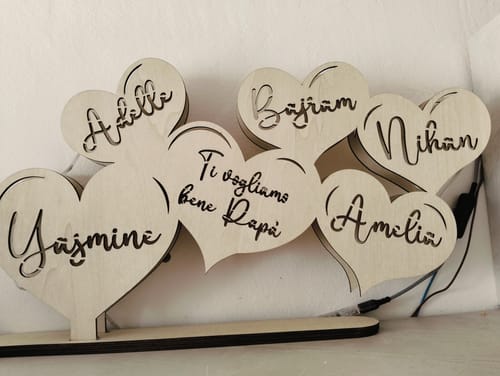 Adelle
Bajram
Nihan
Yasmine
Ti vogliamo
bene Papà
Amelia